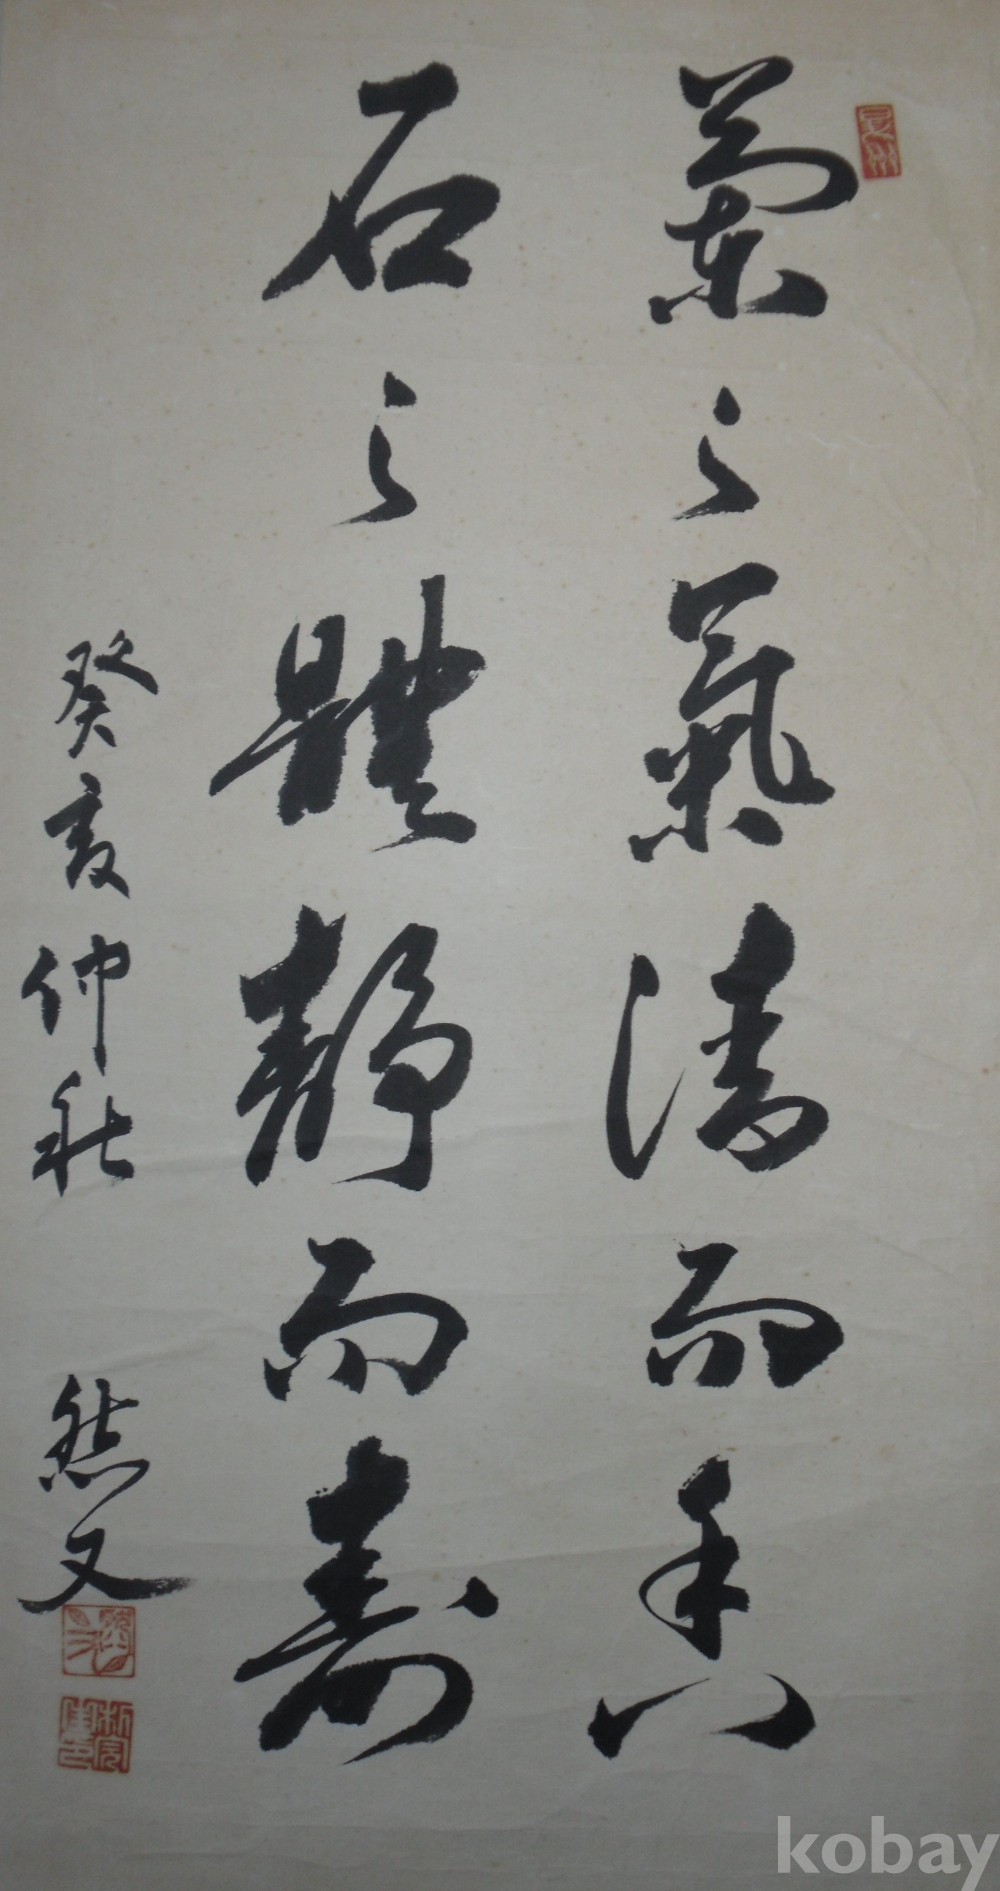 蘭之氣清而香
石之體靜而壽
癸亥仲秋 然又
kobay